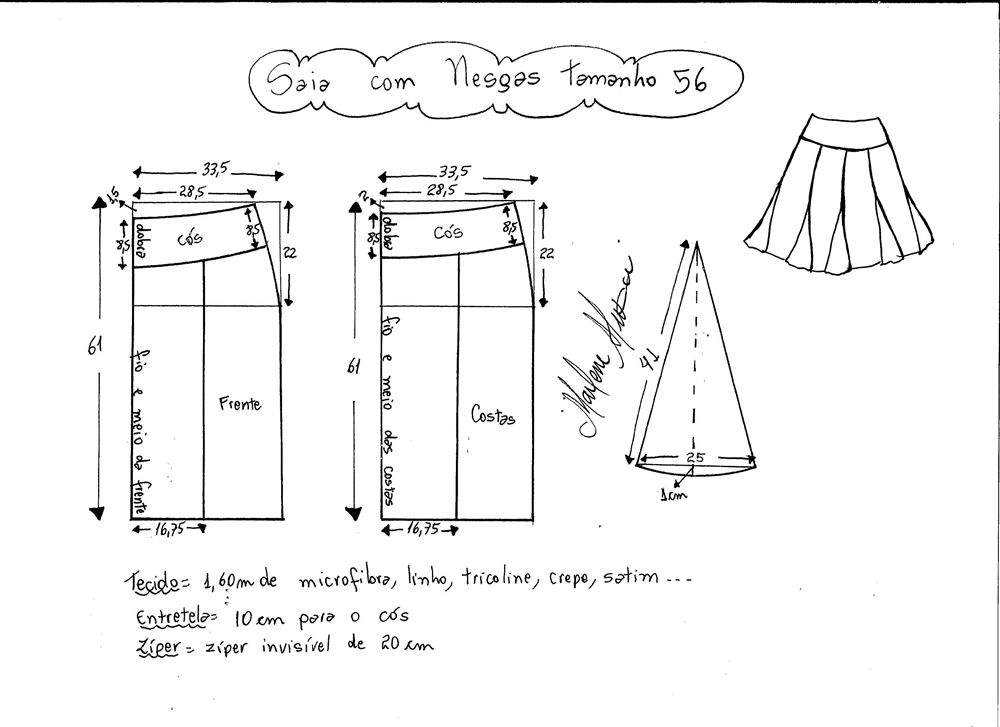 Saia com Nesgas tamanho 56
33,5
28,5
1,5
8,5
dobra
cós
8,5
22
61
fio e meio da frente
Frente
16,75
33,5
28,5
2
8,5
dobra
cós
8,5
22
61
fio e meio das costas
Costas
16,75
41
25
1cm
Marlene
Tecido= 1,60m de microfibra, linho, tricoline, crepe, satim ---
Entretela= 10 cm para o cós
Zíper = zíper invisível de 20 cm